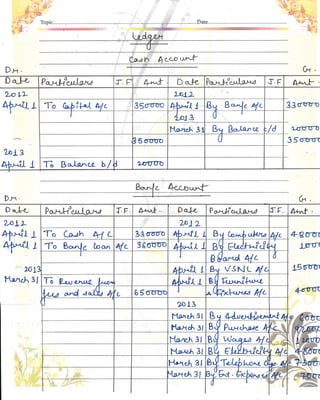 Topic Date
Ledger
Cash Account
Dr. Cr.
Date Particulars J.F Amt Date Particulars J.F Amt
2012 2012
April 1 To Capital A/c 350000 April 1 By Bank A/c 330000
2013
March 31 By Balance c/d 20000
350000 350000
2013
April 1 To Balance b/d 20000
Bank Account
Dr. Cr.
Date Particulars J.F. Amt. Date Particulars J.F Amt.
2012 2012
April 1 To Cash A/c 330000 April 1 By Computers A/c
April 1 To Bank loan A/c 360000 April 1 By Electricity
Board A/c
April 1 By VSNL A/c 15000
2013 April 1 By Furniture
March 31 To Revenue from & Fixtures A/c
fees and sales A/c 650000
2013
March 31 By Advertisement A/c
March 31 By Purchase A/c
March 31 By Wages A/c
March 31 By Electricity A/c
March 31 By Telephone A/c
March 31 By Ent. Expenses A/c